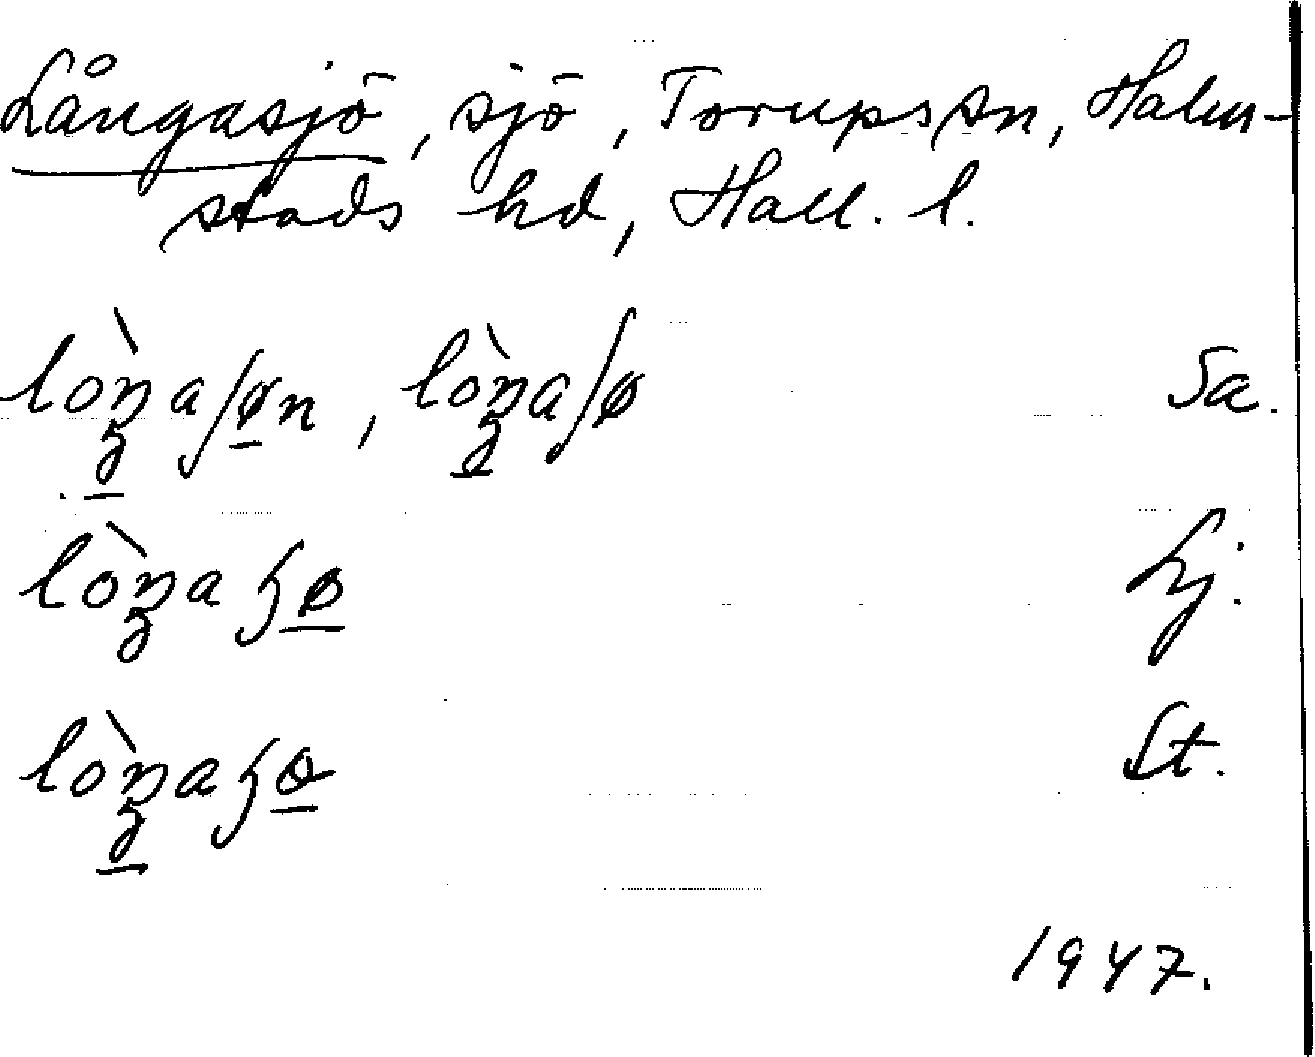 Långasjö, sjö, Torups sn, Halm-
stads hd, Hall. l.
lòŋaʃøn, lòŋaʃø Sa.
lòŋaɧø Lj.
lòŋaɧø St.
1947.